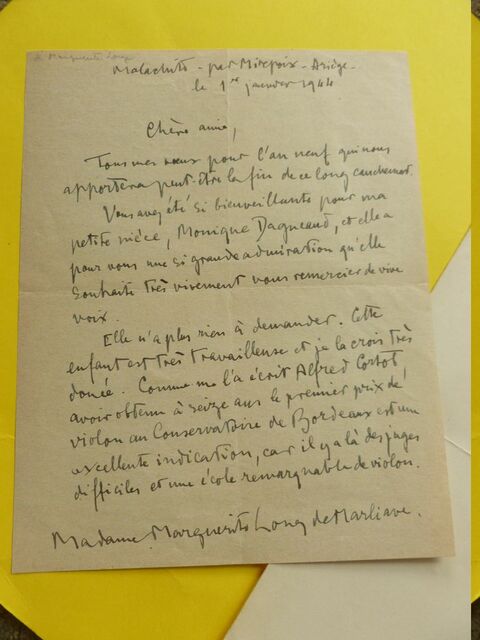 à Marguerite Long
par Mirepoix - Ariège -
le 1er janvier 1944
Chère amie,
Tous mes vœux pour l'an neuf qui nous
apportera peut-être la fin de ce long cauchemar.
Vous avez été si bienveillante pour ma
petite nièce, Monique Dagneaud, et elle a
pour vous une si grande admiration qu'elle
souhaite très vivement vous remercier de vive
voix.
Elle n'a plus rien à demander. Cette
enfant est très travailleuse et je la crois très
douée. Comme me l'a écrit Alfred Cortot,
avoir obtenu à seize ans le premier prix de
violon au Conservatoire de Bordeaux est une
excellente indication, car il y a là des juges
difficiles et une école remarquable de violon.
Madame Marguerite Long de Marliave.